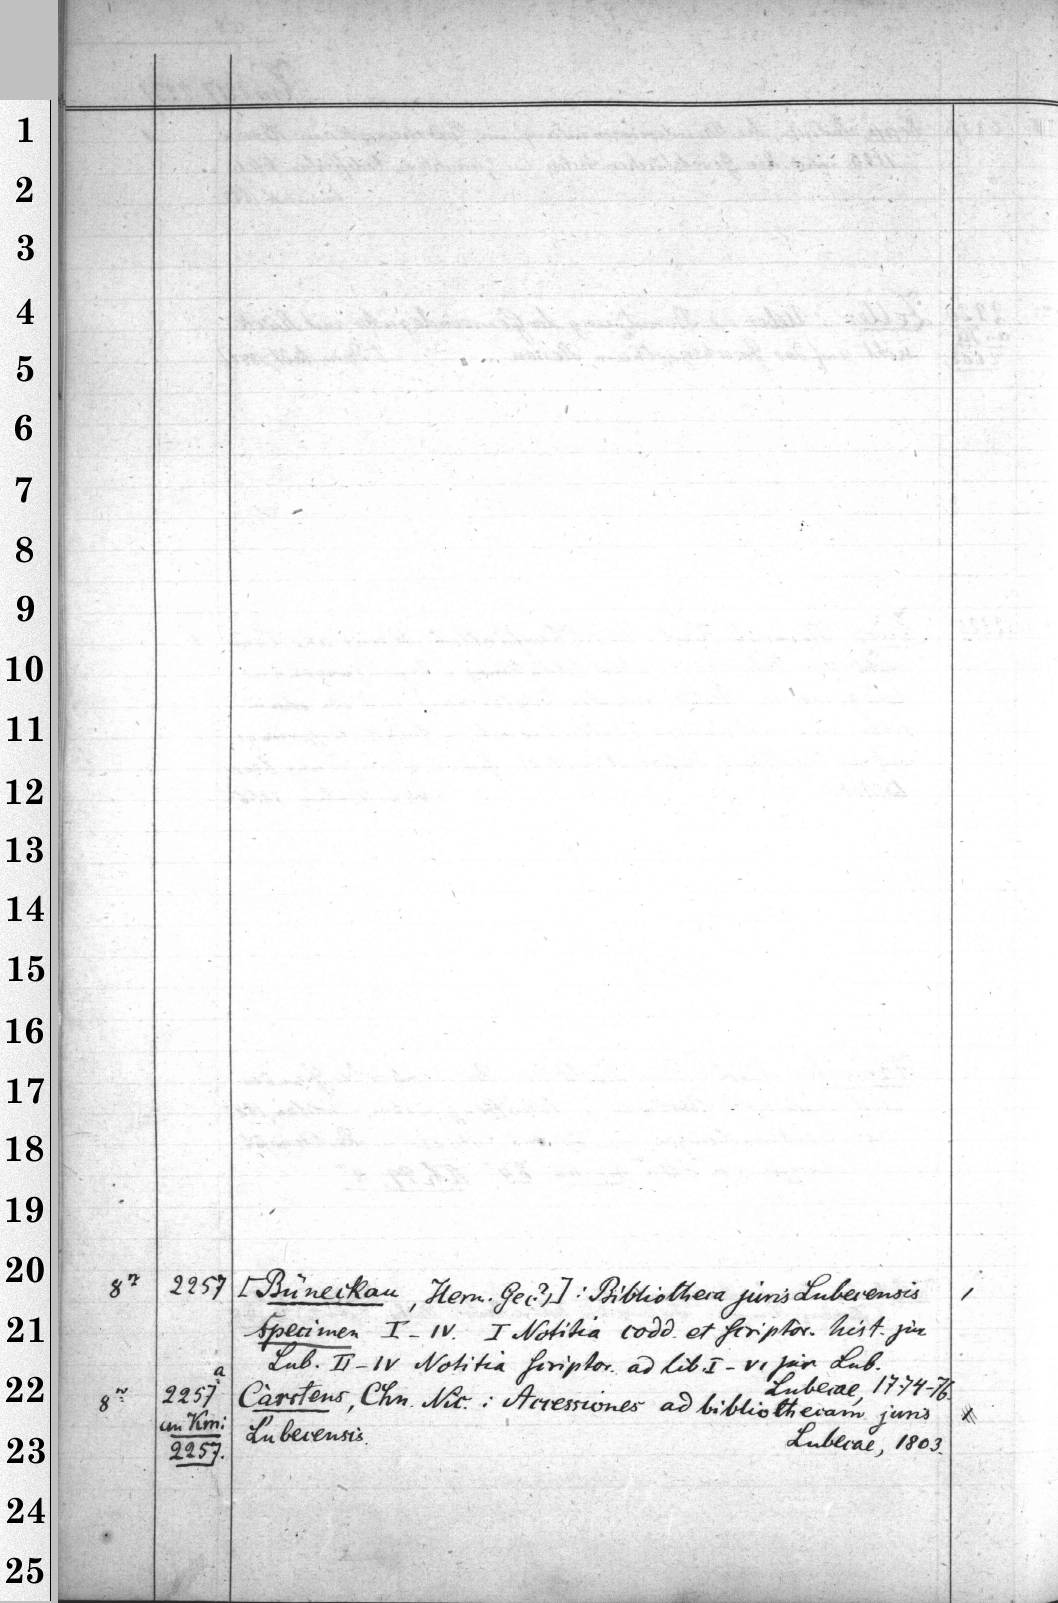 1
2
3
4
5
6
7
8
9
10
11
12
13
14
15
16
17
18
19
20
8° 2257 [Büneckau, Herm. Ge(?)] : Bibliotheca juris Lubecensis
21
specimen I - IV. I Notitia codd. et scriptor. hist. jur
Lub. II - IV Notitia scriptor. ad lib. I - VI jur Lub.
Lubecae, 1774-76
22
8° 2257 a Carstens, Chn. Nic. : Accessiones ad bibliothecam juris
23
2257. Lubecensis. Lubecae, 1803.
24
25